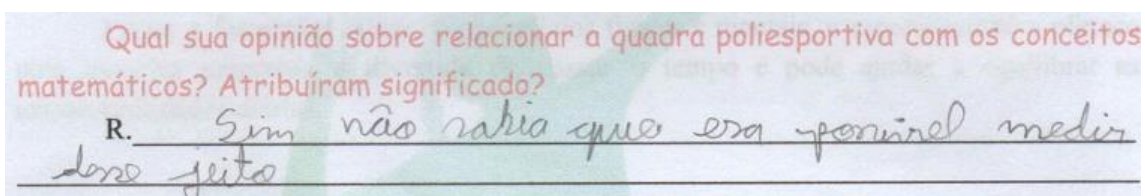 Qual sua opinião sobre relacionar a quadra poliesportiva com os conceitos
matemáticos? Atribuíram significado?
R. Sim não sabia que era possivel medir
desse jeito